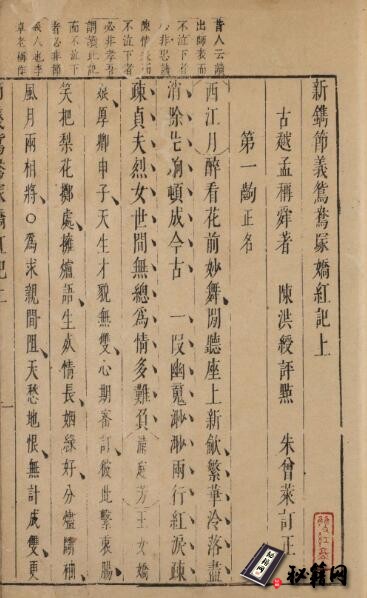 昔人云讀
出師表而
不泣下者
必非忠臣讀
陳情表而
不泣下者
必非孝子
讀此記
而不泣下
者必非節
義人也
新鐫節義鴛鴦塚嬌紅記上
古越孟稱舜著 陳洪綬評點 朱曾萊訂正
第一齣正名
西江月醉看花前妙舞閒聽座上新歈繁華冷落盡
消除俯仰頓成今古 一段幽䰟渺渺兩行紅淚疎
疎貞夫烈女世間無總為情多難負 滿庭芳 王女嬌
娘厚卿申子天生才貌無雙心期密訂彼此繫衷腸
笑把梨花擲處擁爐語生死情長姻緣好分燼斷袖
風月兩相將○為求親間阻天愁地恨無計成雙更
秘籍网